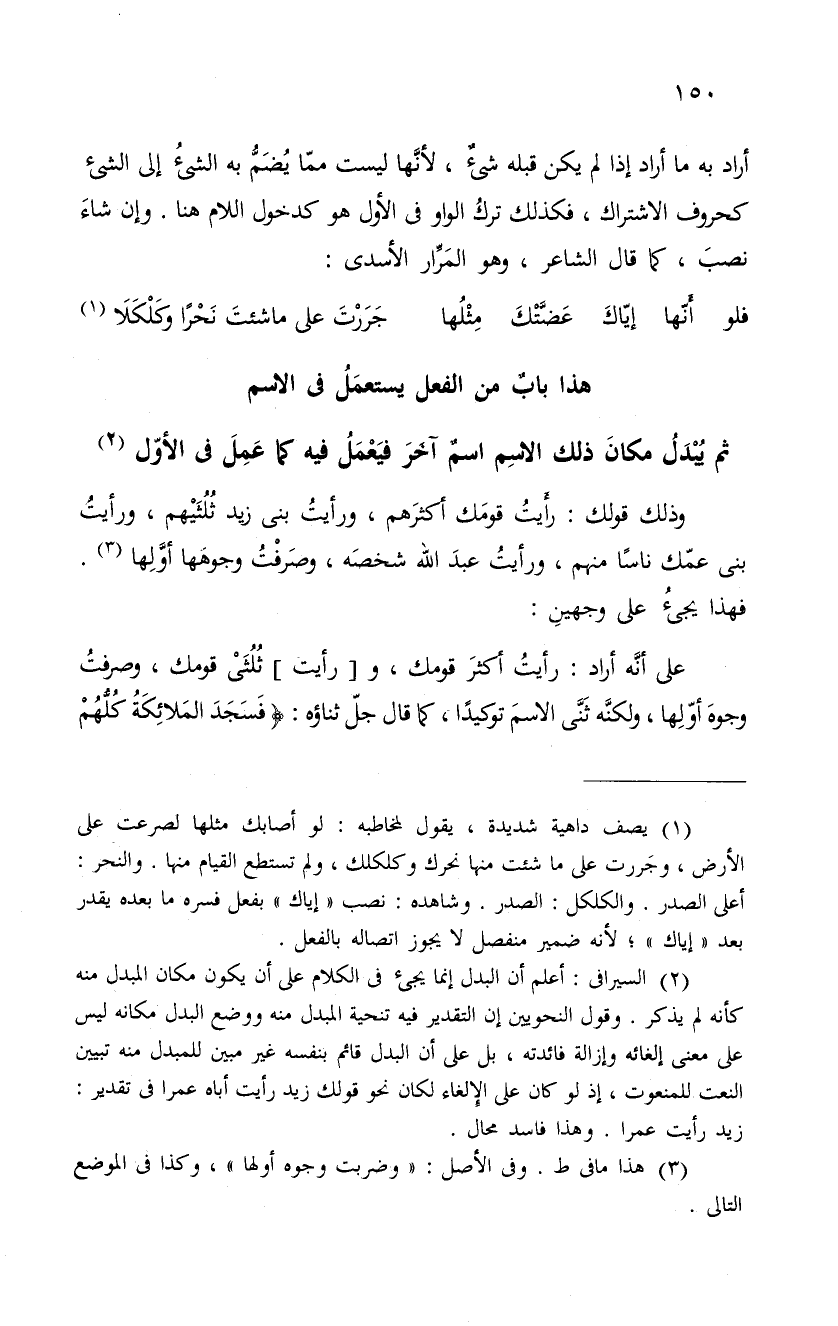 ١٥٠
أراد به ما أراد إذا لم يكن قبله شىءٌ ، لأنَّها ليست ممّا يُضَمُّ به الشىءُ إلى الشىء
كحروف الاشتراك ، فكذلك تركُ الواو فى الأول هو كدخول اللام هنا . وإن شاءَ
نصبَ ، كما قال الشاعر ، وهو المَرَّار الأسدى :
فلو أَنّها إيّاكَ عَضَّتْكَ مِثْلُها جَرَرْتَ على ماشئتَ نَحْرًا وكَلْكَلَا (١)
هذا بابٌ من الفعل يستعمَلُ فى الاسم
ثم يُبْدَلُ مكانَ ذلك الاسمِ اسمٌ آخَرَ فيَعْمَلُ فيه كما عَمِلَ فى الأوّل (٢)
وذلك قولك : رأَيتُ قومَك أكثرَهم ، ورأيتُ بنى زيد ثُلُثَيْهم ، ورأيتُ
بنى عمّك ناسًا منهم ، ورأيتُ عبدَ الله شخصَه ، وصَرَفْتُ وجوهَها أوَّلِها (٣) .
فهذا يجىءُ على وجهينِ :
على أنَّه أراد : رأيتُ أكثرَ قومك ، و [ رأيت ] ثُلُثَىْ قومك ، وصرفتُ
وجوهَ أوّلِها ، ولكنَّه ثَنَّى الاسمَ توكيدًا ، كما قال جلّ ثناؤه : ﴿ فَسَجَدَ المَلائِكَةُ كُلُّهُمْ
(١) يصف داهية شديدة ، يقول لمخاطبه : لو أصابك مثلها لصرعت على
الأرض ، وجَررت على ما شئت منها نحرك وكلكلك ، ولم تستطع القيام منها . والنحر :
أعلى الصدر . والكلكل : الصدر . وشاهده : نصب « إياك » بفعل فسره ما بعده يقدر
بعد « إياك » ؛ لأنه ضمير منفصل لا يجوز اتصاله بالفعل .
(٢) السيرافى : أعلم أن البدل إنما يجىء فى الكلام على أن يكون مكان المبدل منه
كأنه لم يذكر . وقول النحويين إن التقدير فيه تنحية المبدل منه ووضع البدل مكانه ليس
على معنى إلغائه وإزالة فائدته ، بل على أن البدل قائم بنفسه غير مبين للمبدل منه تبيين
النعت للمنعوت ، إذ لو كان على الإلغاء لكان نحو قولك زيد رأيت أباه عمرا فى تقدير :
زيد رأيت عمرا . وهذا فاسد محال .
(٣) هذا مافى ط . وفى الأصل : « وضربت وجوه أولها » ، وكذا فى الموضع
التالى .